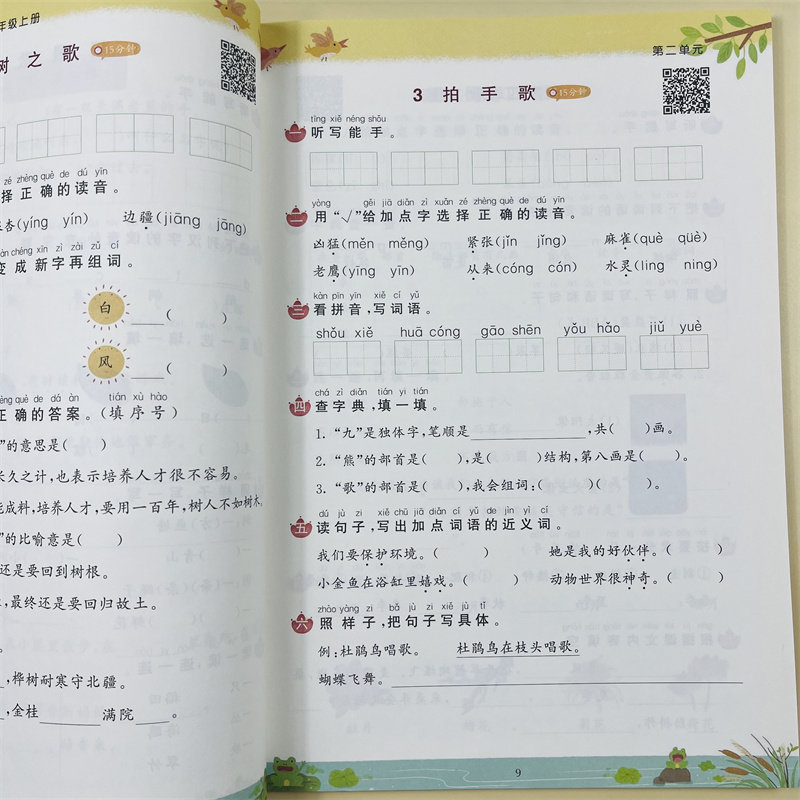 年级上册
树之歌 15分钟
zé zhèng què de dú yīn
择正确的读音。
杏(yíng yín) 边疆(jiāng jāng)
chéng xīn zì zài zǔ cí
变成新字再组词。
白 ( )
风 ( )
què de dá àn tián xù hào
正确的答案。(填序号)
”的意思是( )
长久之计,也表示培养人才很不容易。
能成料,培养人才,要用一百年,树人不如树木。
”的比喻意是( )
还是要回到树根。
,最终还是要回归故土。
,桦树耐寒守北疆。
,金桂 满院 。
第二单元
3 拍手歌 15分钟
tīng xiě néng shǒu
一 听写能手。
yòng gěi jiā diǎn zì xuǎn zé zhèng què de dú yīn
二 用“√”给加点字选择正确的读音。
凶猛(měn měng) 紧张(jǐn jǐng) 麻雀(què qüè)
老鹰(yīng yīn) 从来(cóng cón) 水灵(ling ning)
kàn pīn yīn xiě cí yǔ
三 看拼音,写词语。
shǒu xiě huā cóng gāo shēn yǒu hǎo jiǔ yuè
chá zì diǎn tián yi tián
四 查字典,填一填。
1. “九”是独体字,笔顺是 ,共( )画。
2. “熊”的部首是( ),是( )结构,第八画是( )。
3. “歌”的部首是( ),我会组词:( )( )。
dú jù zi xiě chū jiā diǎn cí yǔ de jìn yì cí
五 读句子,写出加点词语的近义词。
我们要保护环境。( ) 她是我的好伙伴。( )
小金鱼在浴缸里嬉戏。( ) 动物世界很神奇。( )
zhào yàng zi bǎ jù zi xiě jù tǐ
六 照样子,把句子写具体。
例:杜鹃鸟唱歌。 杜鹃鸟在枝头唱歌。
蝴蝶飞舞。
9